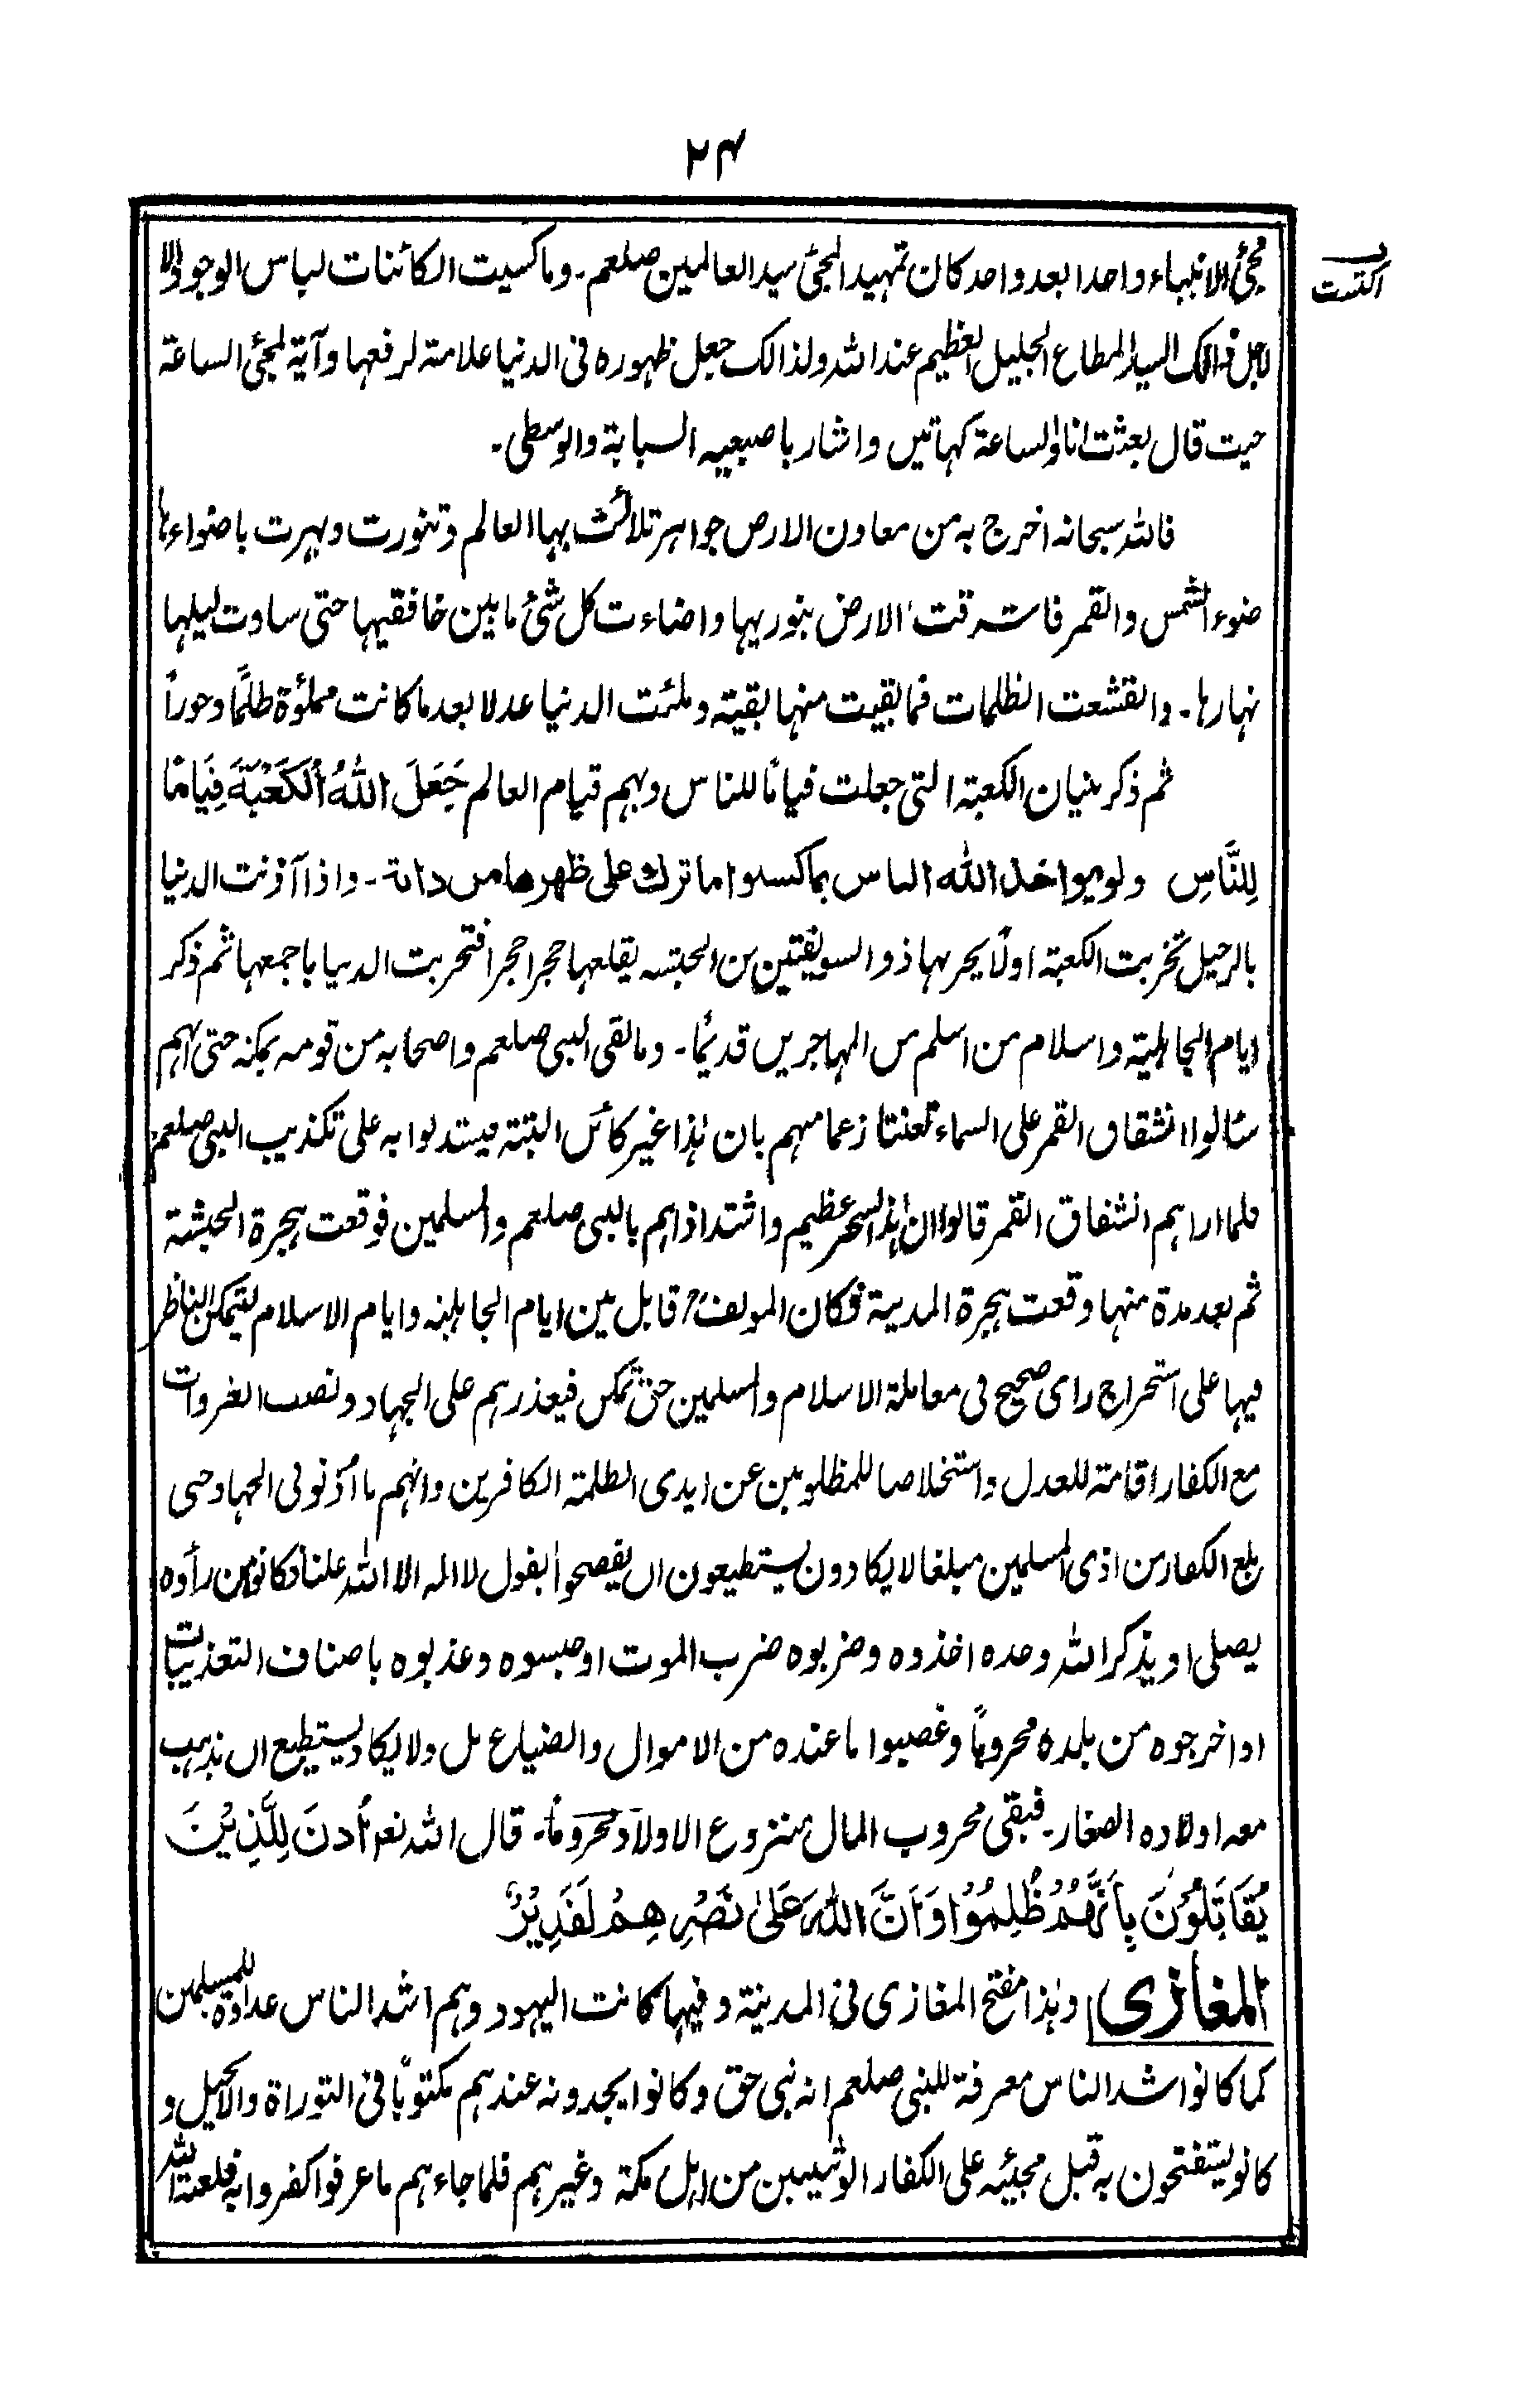 ۲۴
مجئ الانبياء واحدا بعد واحد كان تمهيدا لمجئ سيد العالمين صلعم۔ وما كسيت الكائنات لباس الوجود الا
اكتست
لاجل ذالك السيد المطاع الجليل العظيم عند الله ولذالك جعل ظهوره فى الدنيا علامة لرفعها وآية لمجئ الساعة
حيث قال بعثت انا والساعة كهاتين واشار باصبعيه السبابة والوسطى۔
فالله سبحانه اخرج به من معادن الارض جواهر تلالئت بها العالم وتنورت وبهرت باضواءها
ضوء الشمس والقمر فاشرقت الارض بنور بها واضاءت كل شئ ما بين خافقيها حتى ساوت ليلها
نهارها۔ وانقشعت الظلمات فما بقيت منها بقية وملئت الدنيا عدلا بعد ما كانت مملؤة ظلمًا وجوراً
ثم ذكر بنيان الكعبة التى جعلت قيامًا للناس وبهم قيام العالم جَعَلَ اللهُ الْكَعْبَةَ قِيَامًا
لِلنَّاسِ ولو يواخذ الله الناس بما كسبوا ما ترك على ظهرها من دابة۔ واذا آذنت الدنيا
بالرحيل تخربت الكعبة اولًا يخربها ذو السويقتين من الحبشه يقلعها حجرا حجرا فتخربت الدنيا باجمعها ثم ذكر
ايام الجاهلية واسلام من اسلم من المهاجرين قديمًا۔ وما لقى النبى صلعم واصحابه من قومه بمكه حتى انهم
سالوا انشقاق القمر على السماء تعنتا زعما منهم بان هذا غير كائن البتة ليستدلوا به على تكذيب النبى صلعم
فلما اراهم انشقاق القمر قالوا ان هذا لسحر عظيم واشتد اذاهم بالنبى صلعم والمسلمين فوقعت هجرة الحبشة
ثم بعد مدة منها وقعت هجرة المدينة فكان المولف قابل بين ايام الجاهلية وايام الاسلام ليتمكن الناظر
فيها على استخراج راى صحيح فى معاملة الاسلام والمسلمين حق تمكن فيعذرهم على الجهاد ونصب الغزوات
مع الكفار اقامة للعدل واستخلاصا للمظلومين عن ايدى الظلمة الكافرين وانهم ما أذنو فى الجهاد حتى
بلغ الكفار من اذى المسلمين مبلغا لا يكادون يستطيعون ان يفصحوا بقول لا اله الا الله علنا فكانو من رأوه
يصلى او يذكر الله وحده اخذوه وضربوه ضرب الموت او حبسوه وعذبوه باصناف التعذيبات
او اخرجوه من بلده محروبًا وغصبوا ما عنده من الاموال والضياع بل ولا يكاد يستطيع ان يذهب
معه اولاده الصغار۔ فبقى محروب المال منزوع الاولاد محرومًا۔ قال الله تعم أُذِنَ لِلَّذِيْنَ
يُقَاتَلُوْنَ بِأَنَّهُمْ ظُلِمُوْا وَاَنَّ اللهَ عَلىٰ نَصْرِهِمْ لَقَدِيْرٌ
المغازى وهذا مفتح المغازى فى المدينة وفيها كانت اليهود وهم اشد الناس عداوة للمسلمين
كما كانوا اشد الناس معرفة للنبى صلعم انه نبى حق وكانوا يجدونه عندهم مكتوبًا فى التوراة والانجيل و
كانو يستفتحون به قبل مجيئه على الكفار الوثنيين من اهل مكة وغيرهم فلما جاءهم ما عرفوا كفروا به فلعنة الله